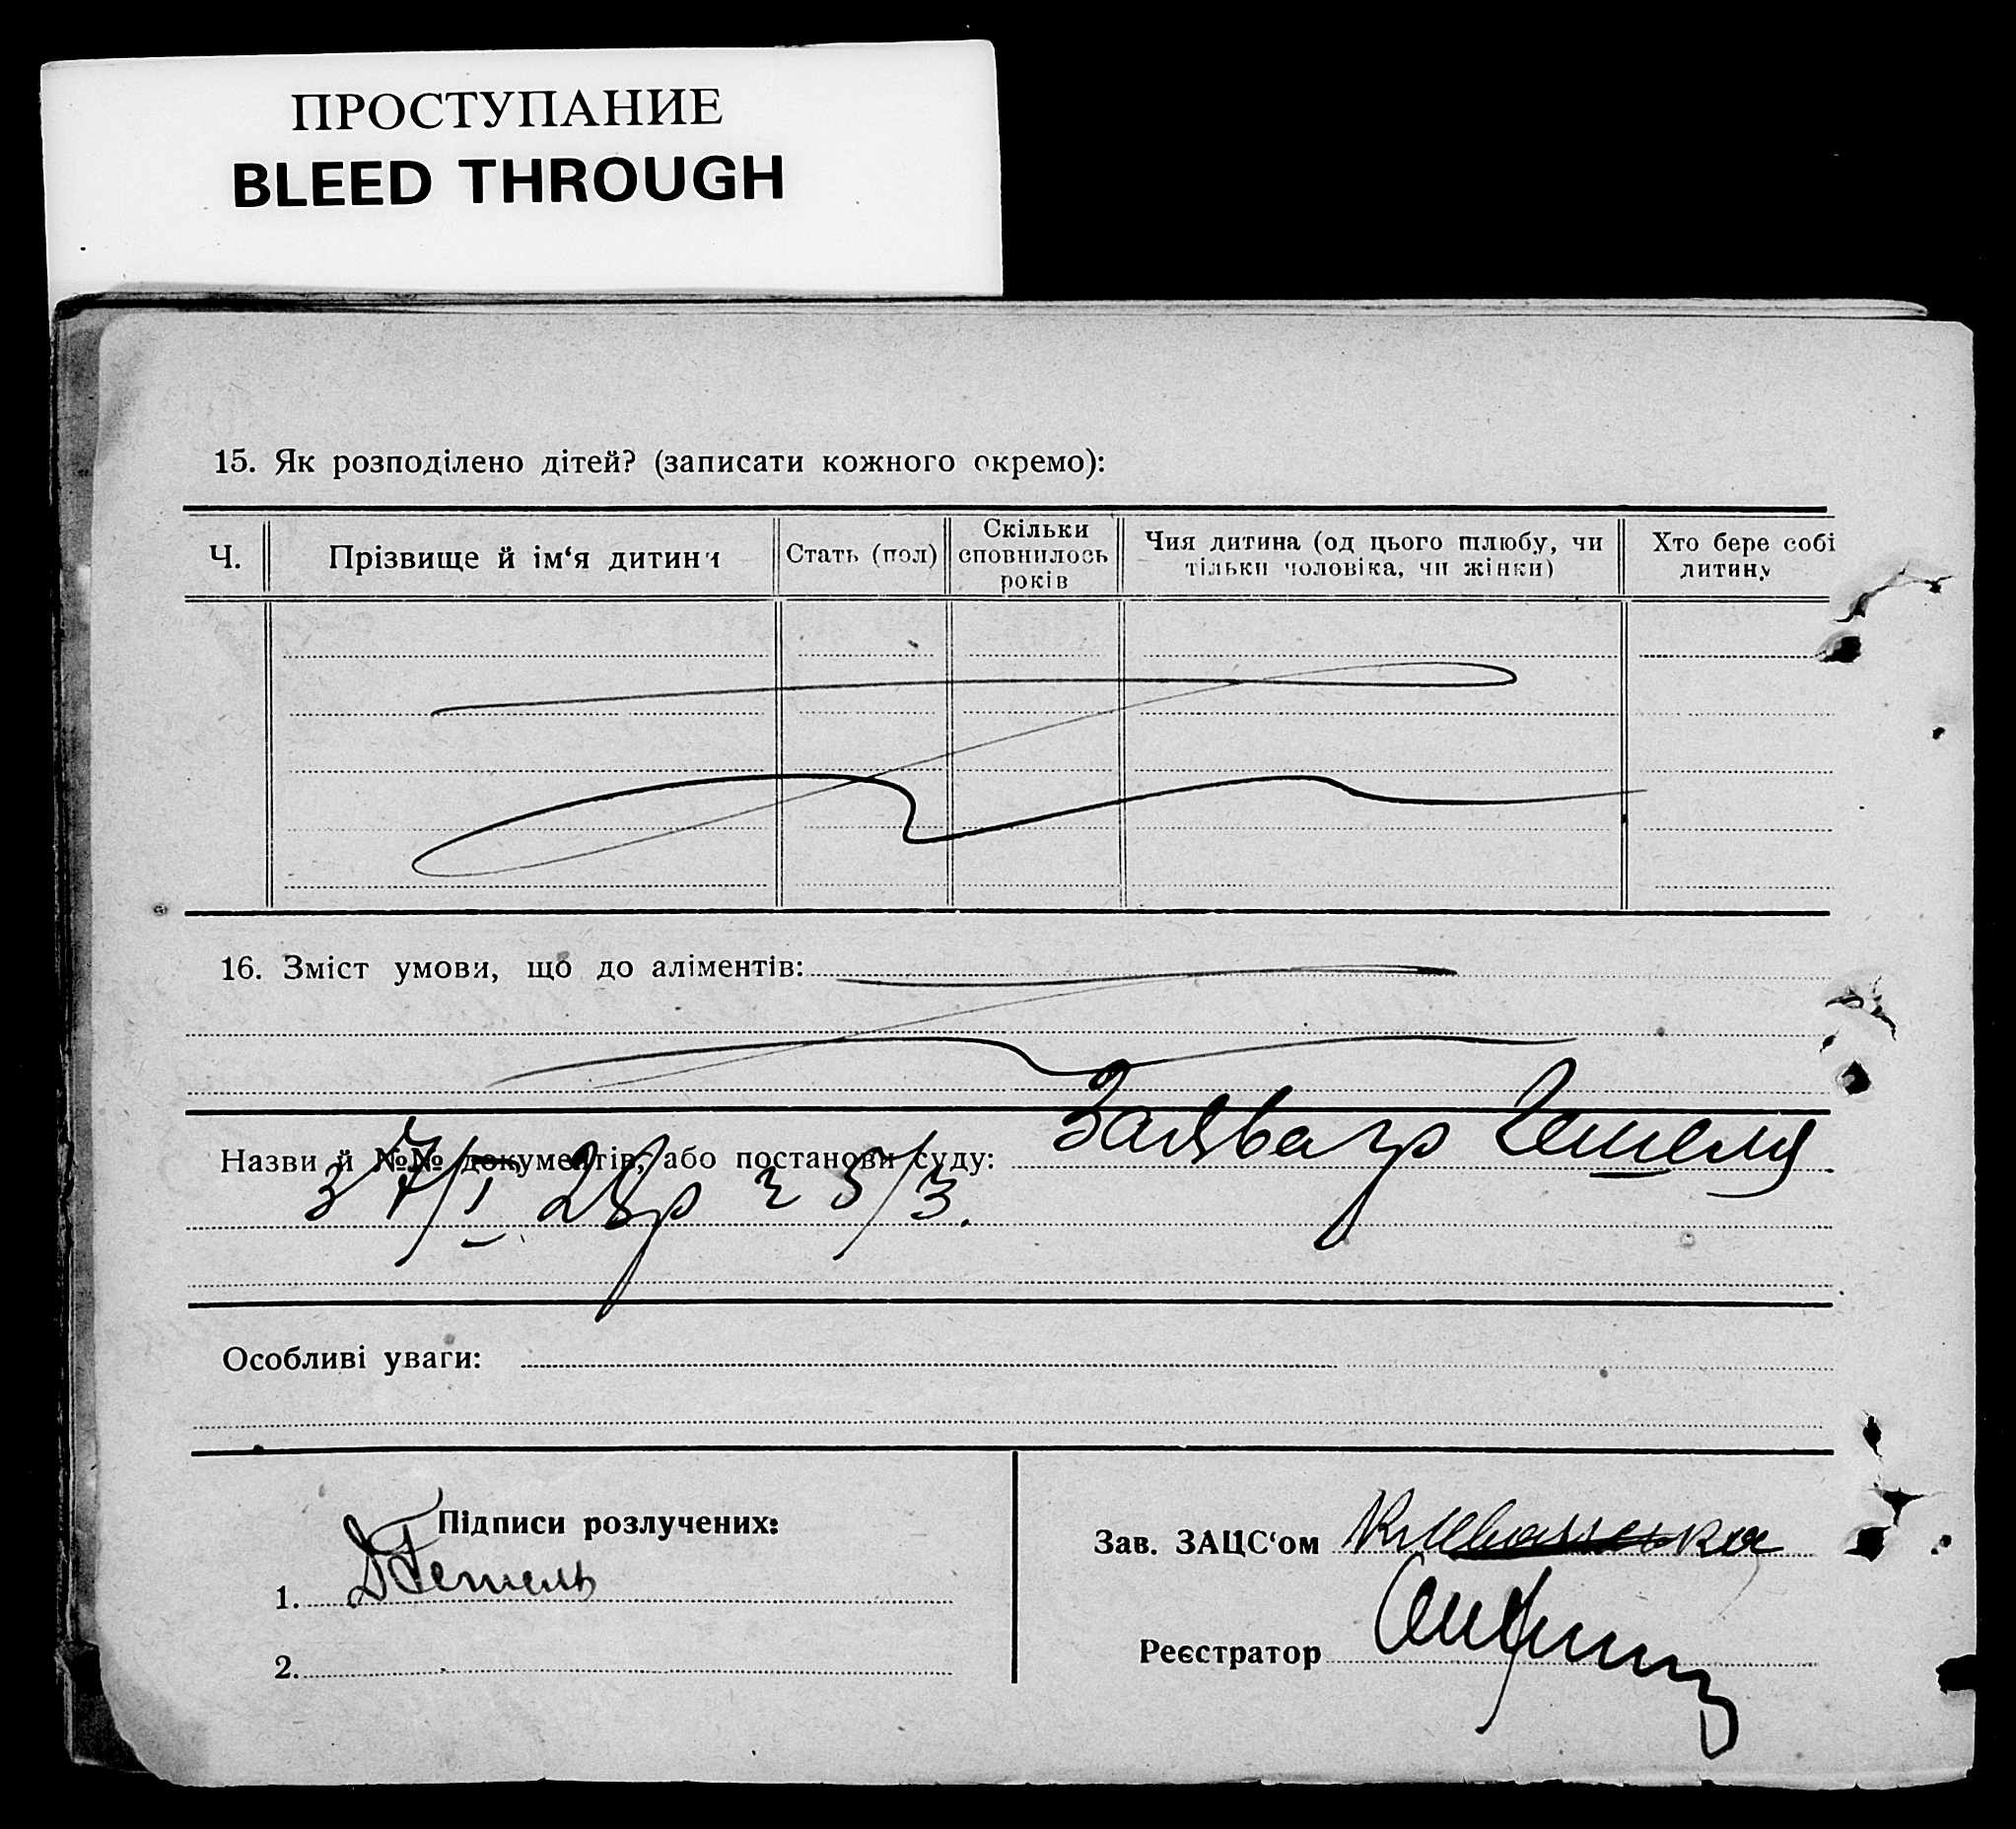 ПРОСТУПАНИЕ
BLEED THROUGH
15. Як розподілено дітей? (записати кожного окремо):
Ч.
Прізвище й ім‘я дитини
Стать (пол)
Скільки сповнилось років
Чия дитина (од цього шлюбу, чи тільки чоловіка, чи жінки)
Хто бере собі дитину
16. Зміст умови, що до аліментів:
Назви й №№ документів, або постанови суду: Заява гр Гешеля
з 7/I 28р з 5/3.
Особливі уваги:
Підписи розлучених:
1. Гешель
2.
Зав. ЗАЦС‘ом
Реєстратор